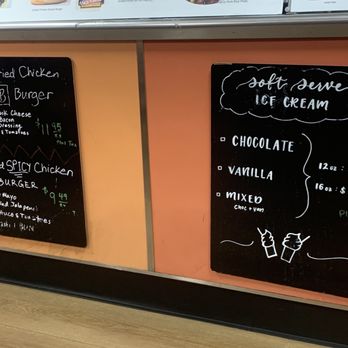 ried Chicken
Burger
ck Cheese
Bacon
Dressing
& Tomatoes
$11.95
SPICY Chicken
BURGER
Mayo
Jalapeni
auce & Tomatoes
BUN
$9.49
soft serve
ICE CREAM
CHOCOLATE
VANILLA
MIXED
CHOC + VAN
12oz
16oz : $